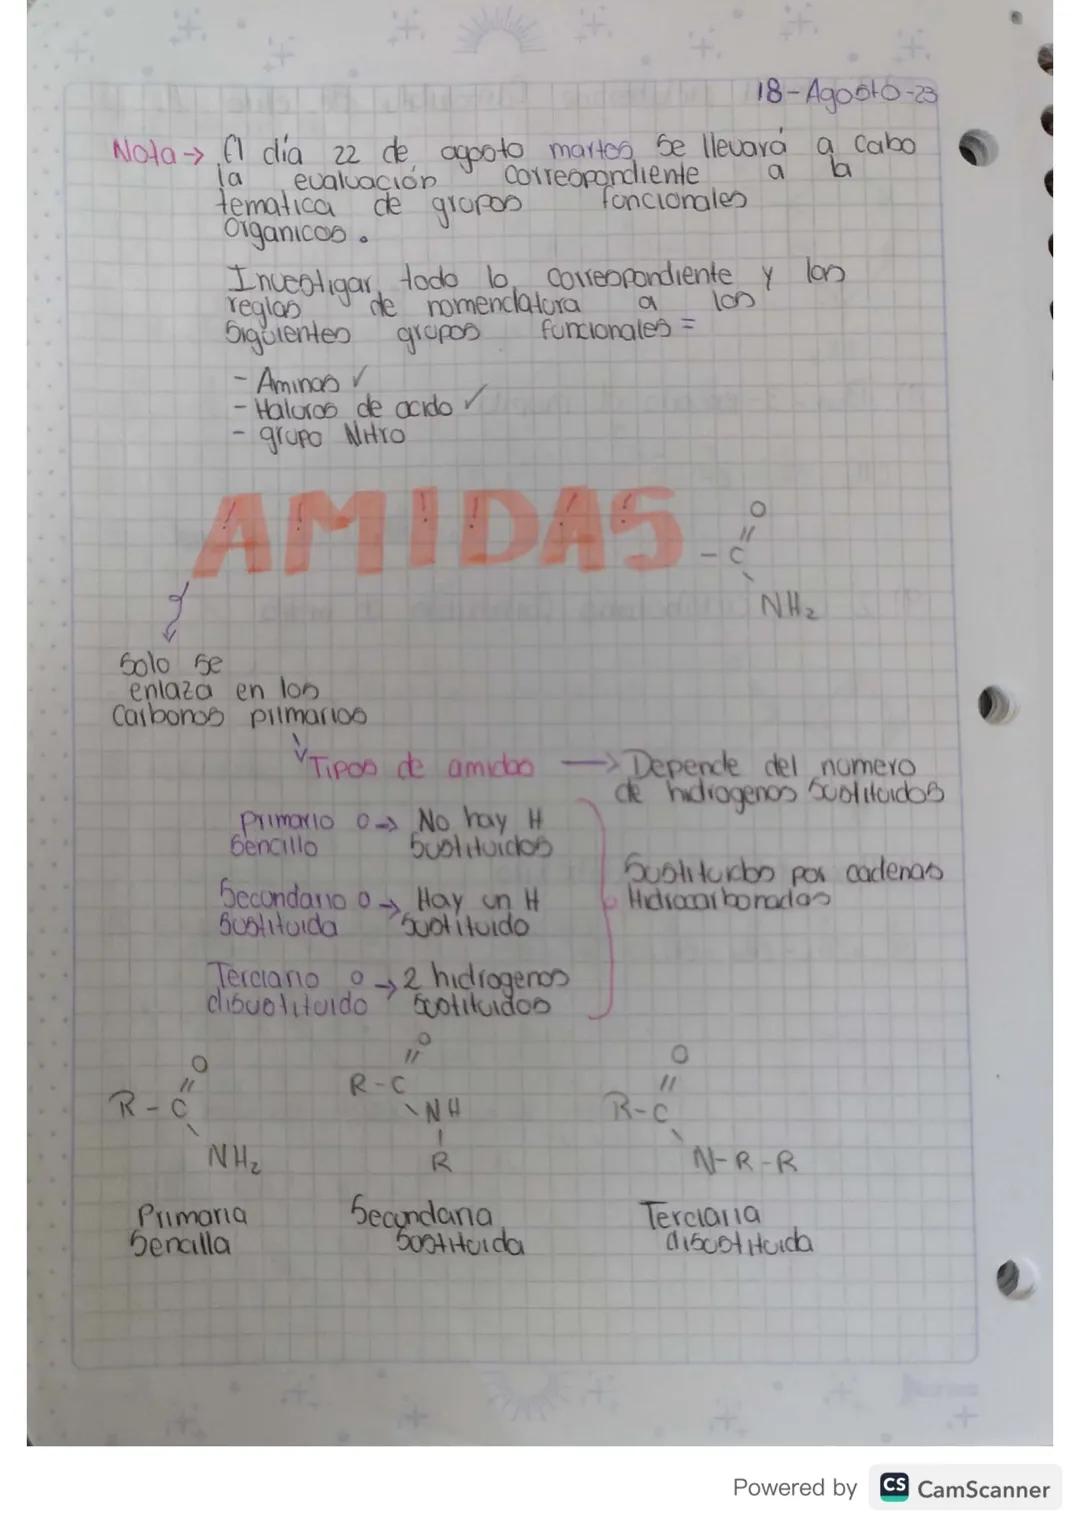 18-Agosto-23
Nota → El día 22 de agosto martes se llevará a cabo
la evaluación correspondiente a la
tematica de grupos funcionales
Organicos.
Investigar todo lo correspondiente y las
reglas de nomenclatura a los
Siguientes grupos funcionales =
- Aminas ✓
- Haluros de acido ✓
- grupo Nitro
AMIDAS
O
//
- C
\
NH2
Solo se
enlaza en los
Carbonos primarios
Tipos de amidas → Depende del numero
de hidrogenos sustituidos
Primario o → No hay H
Sencillo sustituidos
Sustituidos por cadenas
Hidrocarbonadas
Secundario o → Hay un H
Sustituida sustituido
Terciario o → 2 hidrogenos
disustituido sustituidos
O
//
R - C
\
NH2
Primaria
Sencilla
O
//
R - C
\ NH
|
R
Secundaria
Sustituida
O
//
R - C
\
N - R - R
Terciaria
disustituida
Powered by CS CamScanner